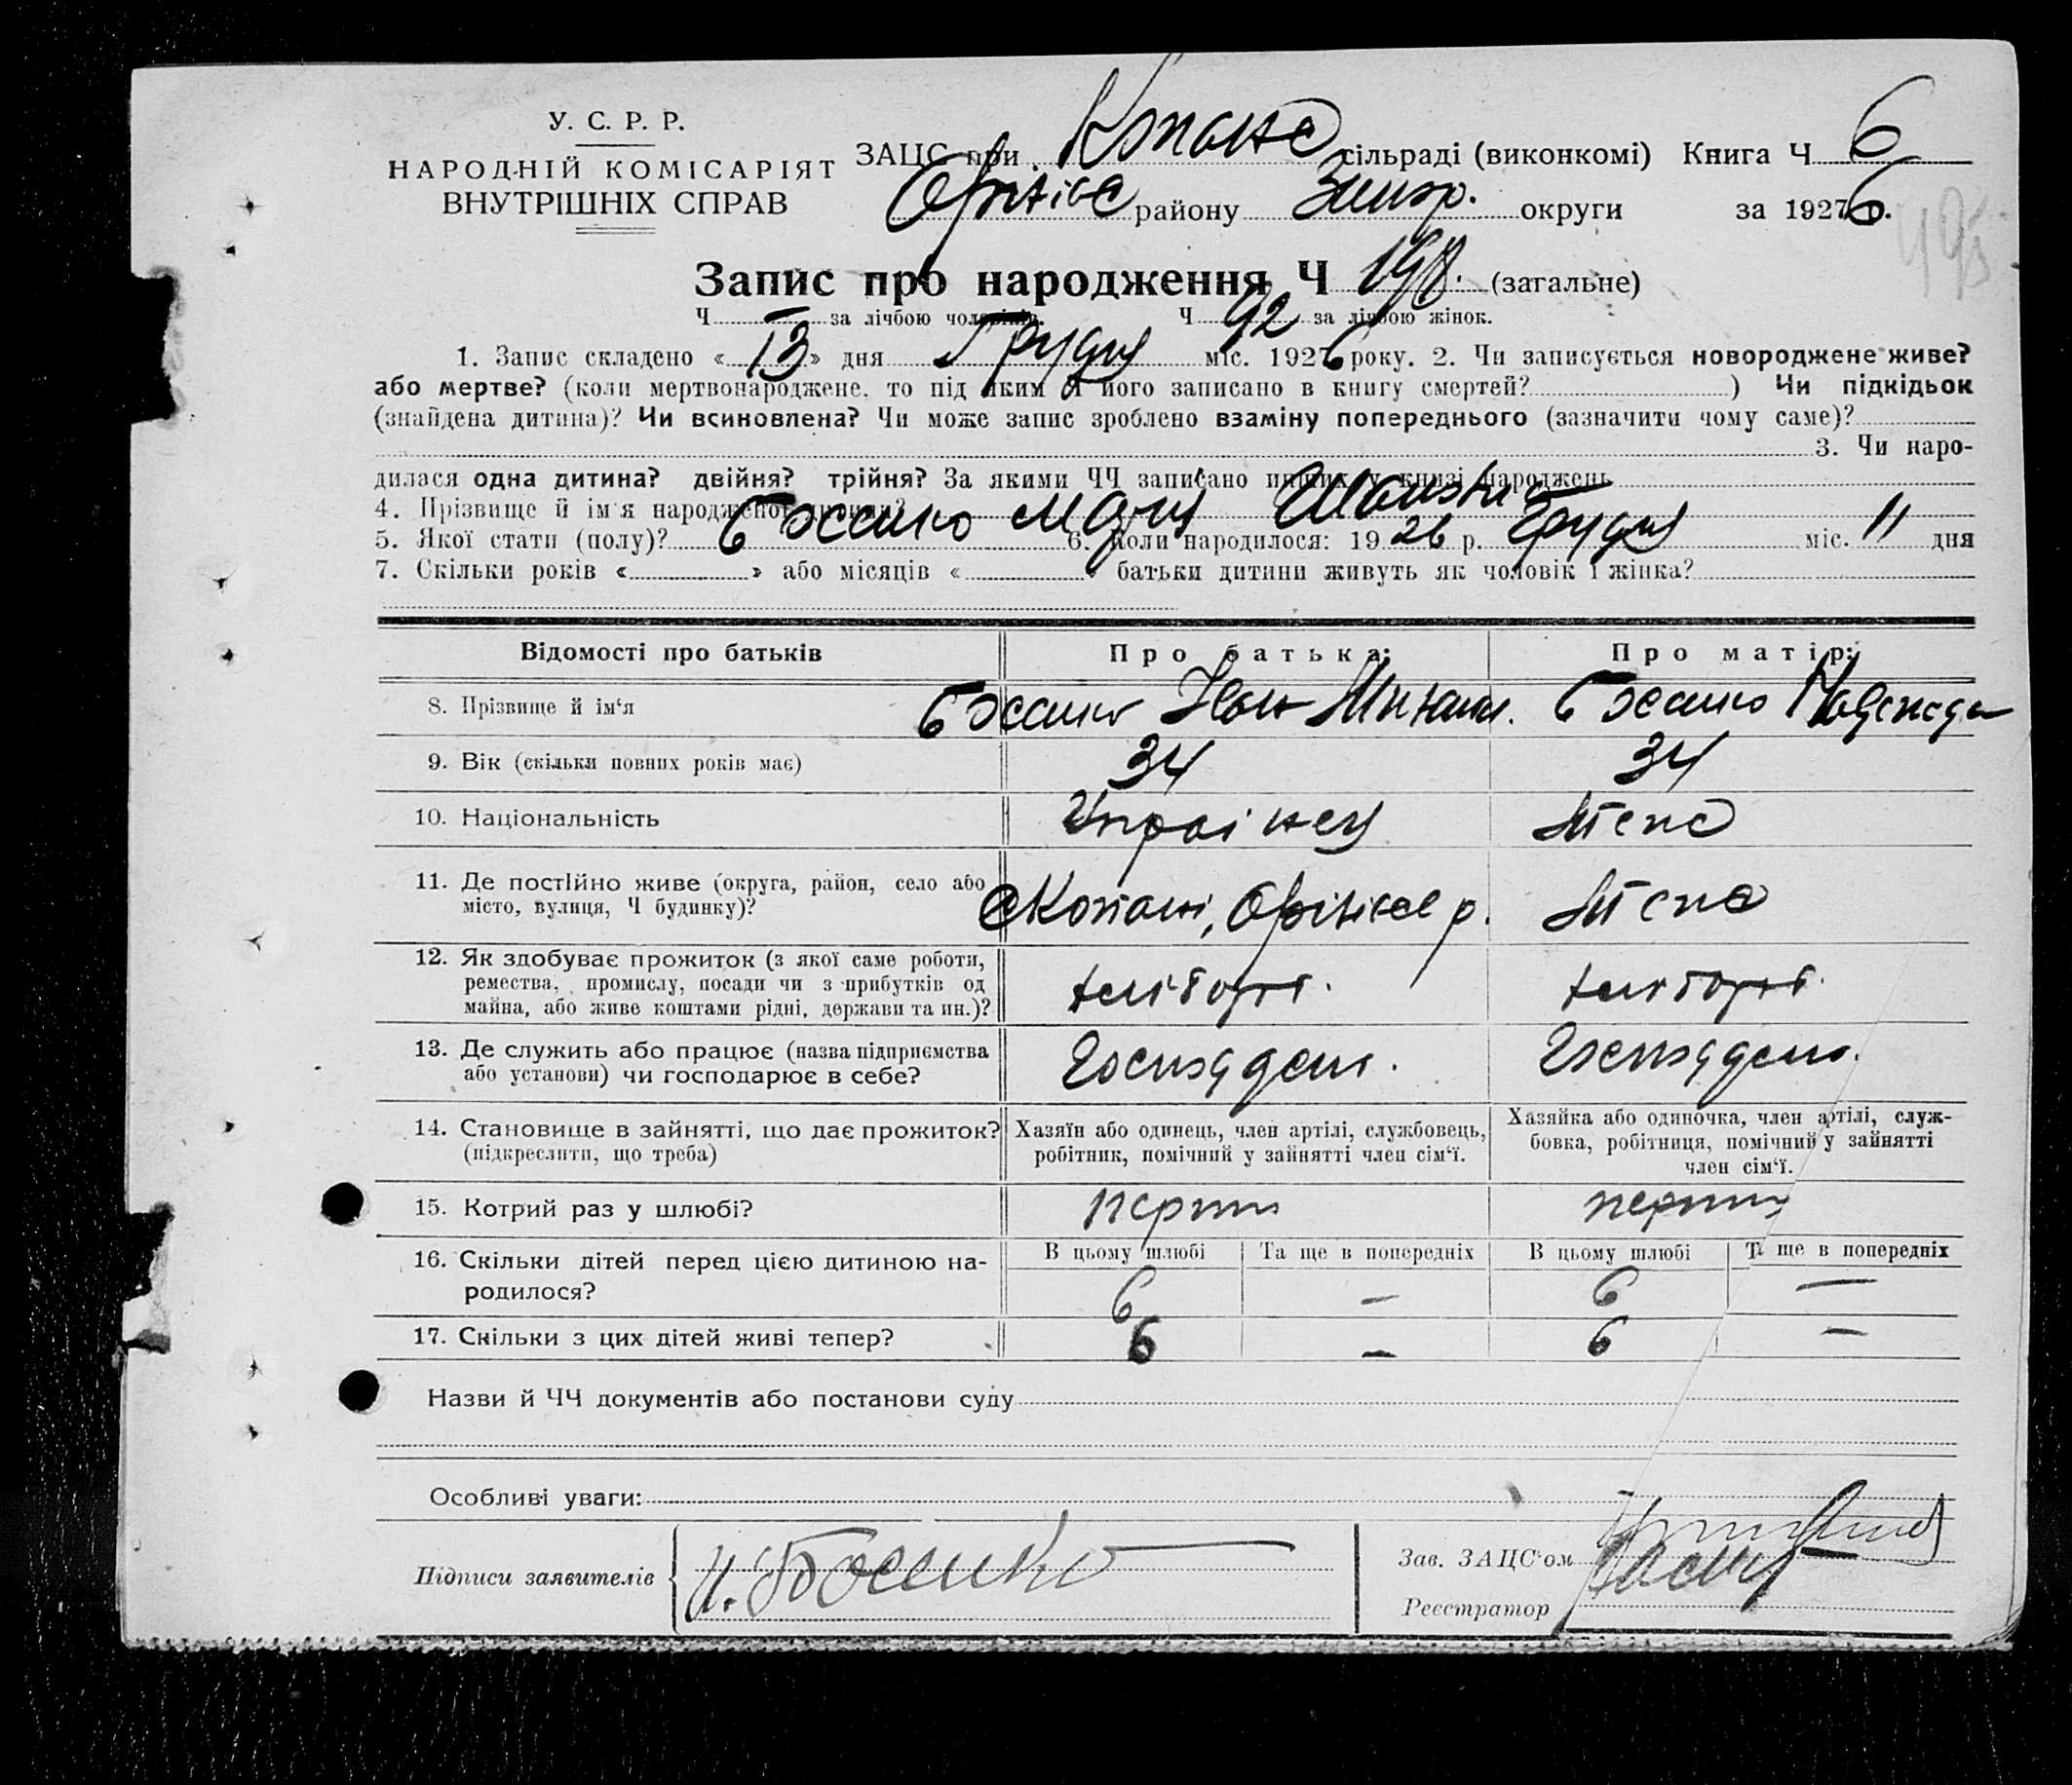 У. С. Р. Р.
НАРОДНІЙ КОМІСАРІЯТ
ВНУТРІШНІХ СПРАВ
ЗАЦС при сільраді (виконкомі) Книга Ч 6
району округи за 1926 р.
Запис про народження Ч 198. (загальне)
Ч за лічбою чоловіків. Ч 92 за лічбою жінок.
1. Запис складено « 13 » дня Грудня міс. 1926 року. 2. Чи записується новороджене живе?
або мертве? (коли мертвонароджене, то під яким Ч його записано в книгу смертей? ) Чи підкідьок
(знайдена дитина)? Чи всиновлена? Чи може запис зроблено взаміну попереднього (зазначити чому саме)?
3. Чи наро-
дилася одна дитина? двійня? трійня? За якими ЧЧ записано инших у книзі народжень
4. Прізвище й ім'я народженої дитини?
5. Якої стати (полу)? 6. Коли народилося: 1926 р. Грудня міс. 11 дня
7. Скільки років « » або місяців « » батьки дитини живуть як чоловік і жінка?
Відомості про батьків Про батька: Про матір:
8. Прізвище й ім‘я Іван Надежда
9. Вік (скільки повних років має) 34 34
10. Національність Украінец Теж
11. Де постійно живе (округа, район, село або
місто, вулиця, Ч будинку)? с Копані, р. Теж
12. Як здобуває прожиток (з якої саме роботи,
ремества, промислу, посади чи з прибутків од
майна, або живе коштами рідні, держави та ин.)? хлібороб. хлібороб.
13. Де служить або працює (назва підприємства
або установи) чи господарює в себе?
14. Становище в зайнятті, що дає прожиток?
(підкреслити, що треба)
Хазяїн або одинець, член артілі, службовець,
робітник, помічний у зайнятті член сім‘ї.
Хазяйка або одиночка, член артілі, служ-
бовка, робітниця, помічний у зайнятті
член сім‘ї.
15. Котрий раз у шлюбі?
В цьому шлюбі Та ще в попередніх В цьому шлюбі Та ще в попередніх
16. Скільки дітей перед цією дитиною на-
родилося? 6 — 6 —
17. Скільки з цих дітей живі тепер? 6 — 6 —
Назви й ЧЧ документів або постанови суду
Особливі уваги:
Підписи заявителів
Зав. ЗАЦС‘ом
Реєстратор